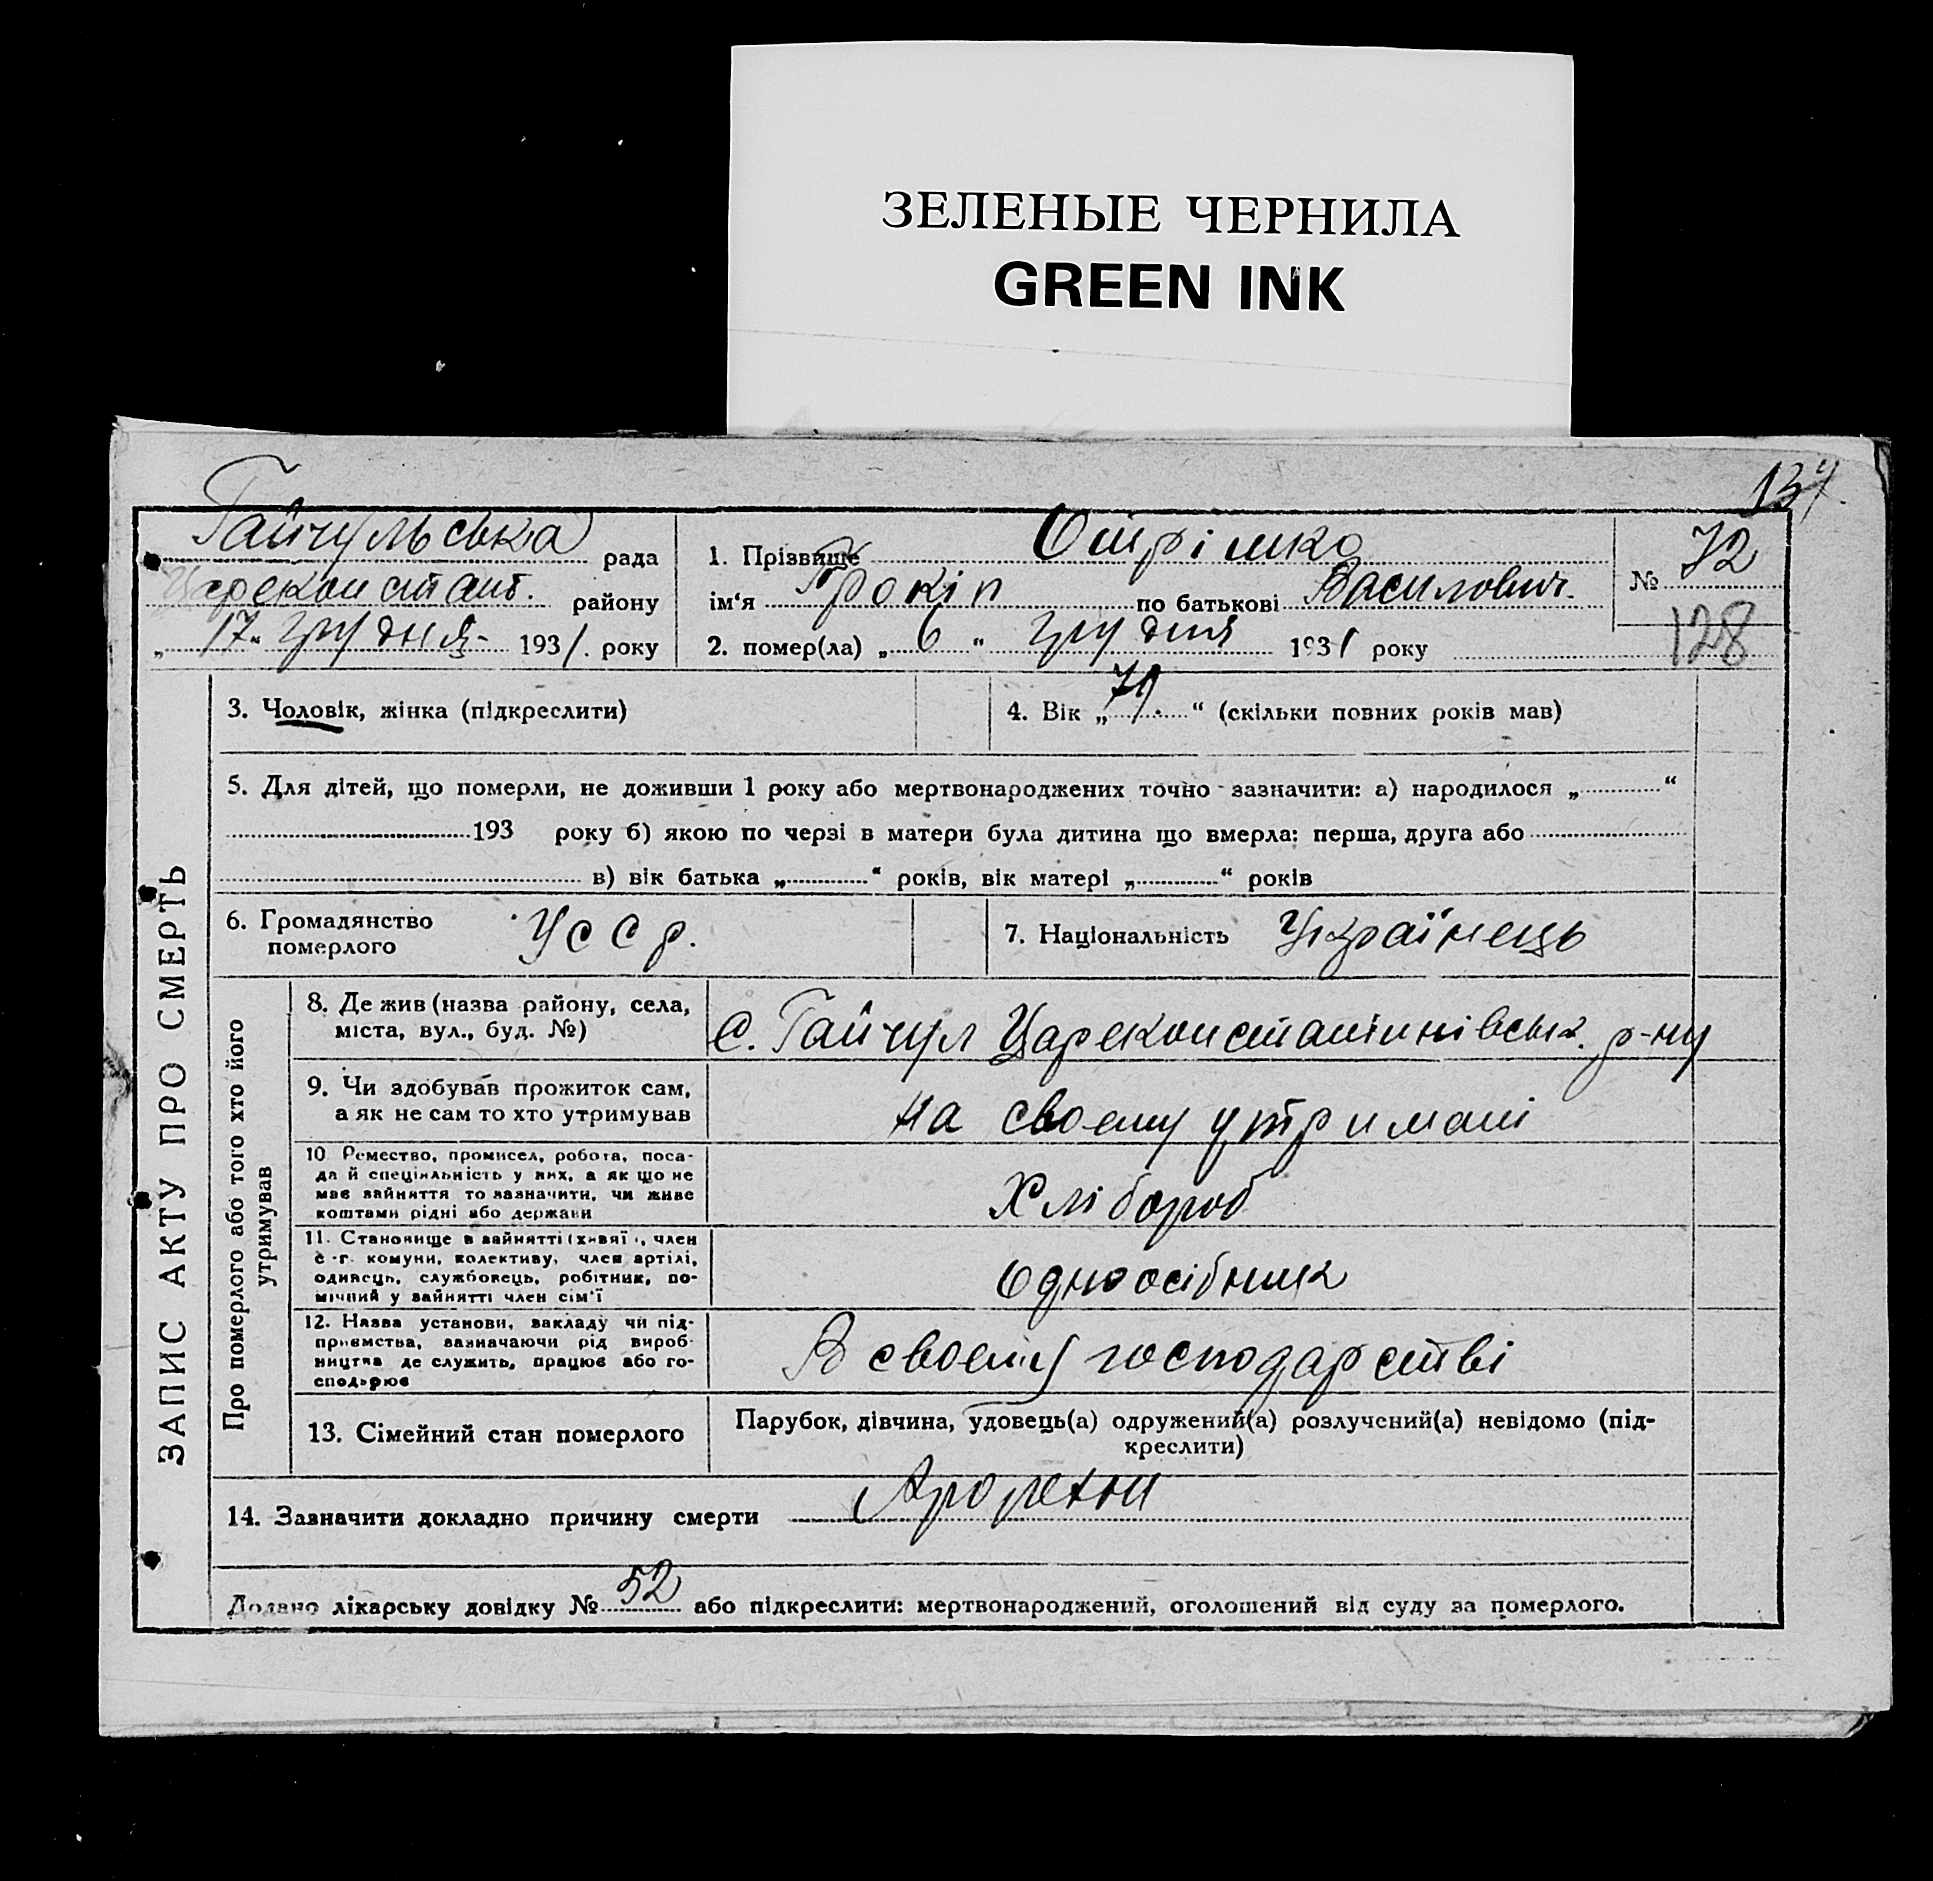 ЗЕЛЕНЫЕ ЧЕРНИЛА
GREEN INK
134.
Гайчульська рада
Царекон ст ант. району
„ 17 " грудня 1931. року
1. Прізвище Отрішко
ім‘я Прокіп по батькові Василович.
2. помер(ла) „ 6 " грудня 1931 року
№ 72
128
ЗАПИС АКТУ ПРО СМЕРТЬ
3. Чоловік, жінка (підкреслити)
4. Вік „ 79. “ (скільки повних років мав)
5. Для дітей, що померли, не доживши 1 року або мертвонароджених точно зазначити: а) народилося „ “
193 року б) якою по черзі в матери була дитина що вмерла: перша, друга або
в) вік батька „ “ років, вік матері „ “ років
6. Громадянство
померлого
УССР.
7. Національність Українець
Про померлого або того хто його
утримував
8. Де жив (назва району, села,
міста, вул., буд. №)
с. Гайчул Цареконстантинівськ. р-ну
9. Чи здобував прожиток сам,
а як не сам то хто утримував
на своєму утримані
10 Ремество, промисел, робота, поса-
да й спеціяльність у них, а як що не
має зайняття то зазначити, чи живе
коштами рідні або держави
Хлібороб
11. Становище в зайнятті (хазяї , член
с -г. комуни, колективу, член артілі,
одинець, службовець, робітник, по-
мічний у зайнятті член сім‘ї
Одноосібник
12. Назва установи, закладу чи під-
приємства, зазначаючи рід вироб-
ництва де служить, працює або го-
сподарює
В своєму господарстві
13. Сімейний стан померлого
Парубок, дівчина, удовець(а) одружений(а) розлучений(а) невідомо (під-
креслити)
14. Зазначити докладно причину смерти
Додано лікарську довідку № 52 або підкреслити: мертвонароджений, оголошений від суду за померлого.